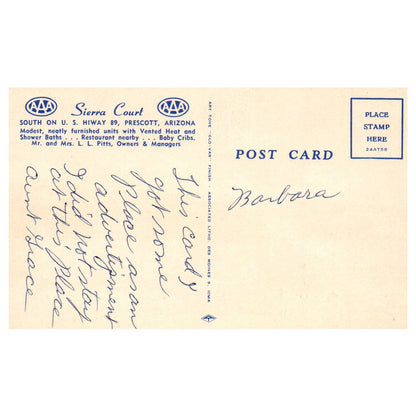 AAA Sierra Court AAA
SOUTH ON U. S. HIWAY 89, PRESCOTT, ARIZONA
Modest, neatly furnished units with Vented Heat and
Shower Baths . . . Restaurant nearby . . . Baby Cribs.
Mr. and Mrs. L. L. Pitts, Owners & Managers
This card I
got some
place as an
advertisement
I did not stay
at this place
Aunt Grace
ART TONE "GLO-VAR" FINISH ASSOCIATED LITHO. DES MOINES 9, IOWA
POST CARD
PLACE
STAMP
HERE
Barbara